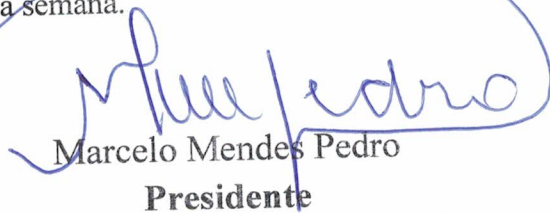 a semana.
Pedro
Marcelo Mendes Pedro
Presidente